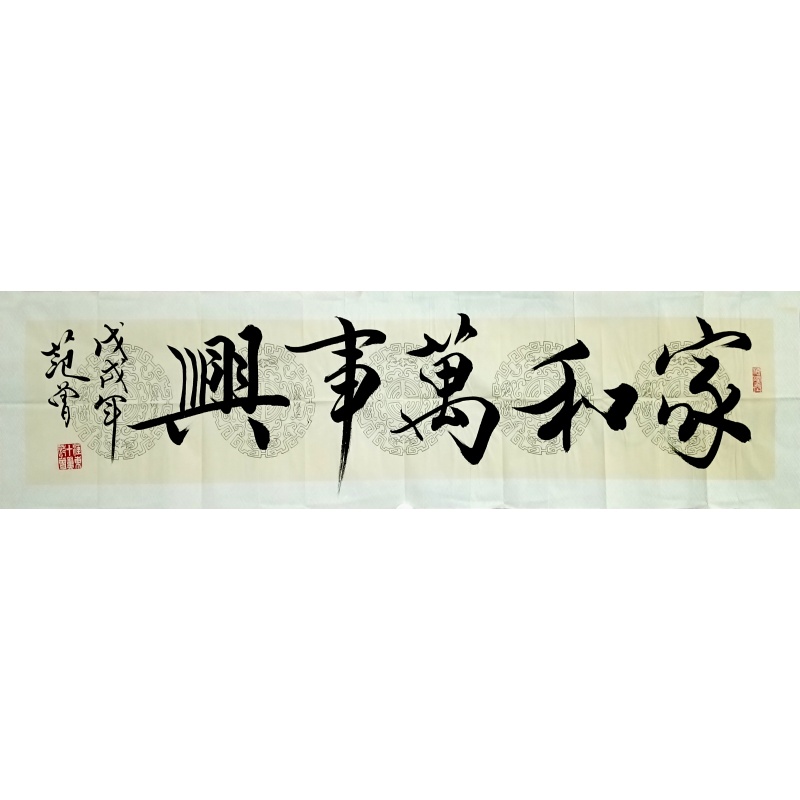 家和萬事興
戊戌年
范曾